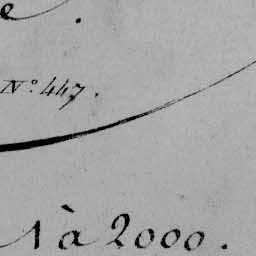 e.
N.º 447.
1 à 2000.